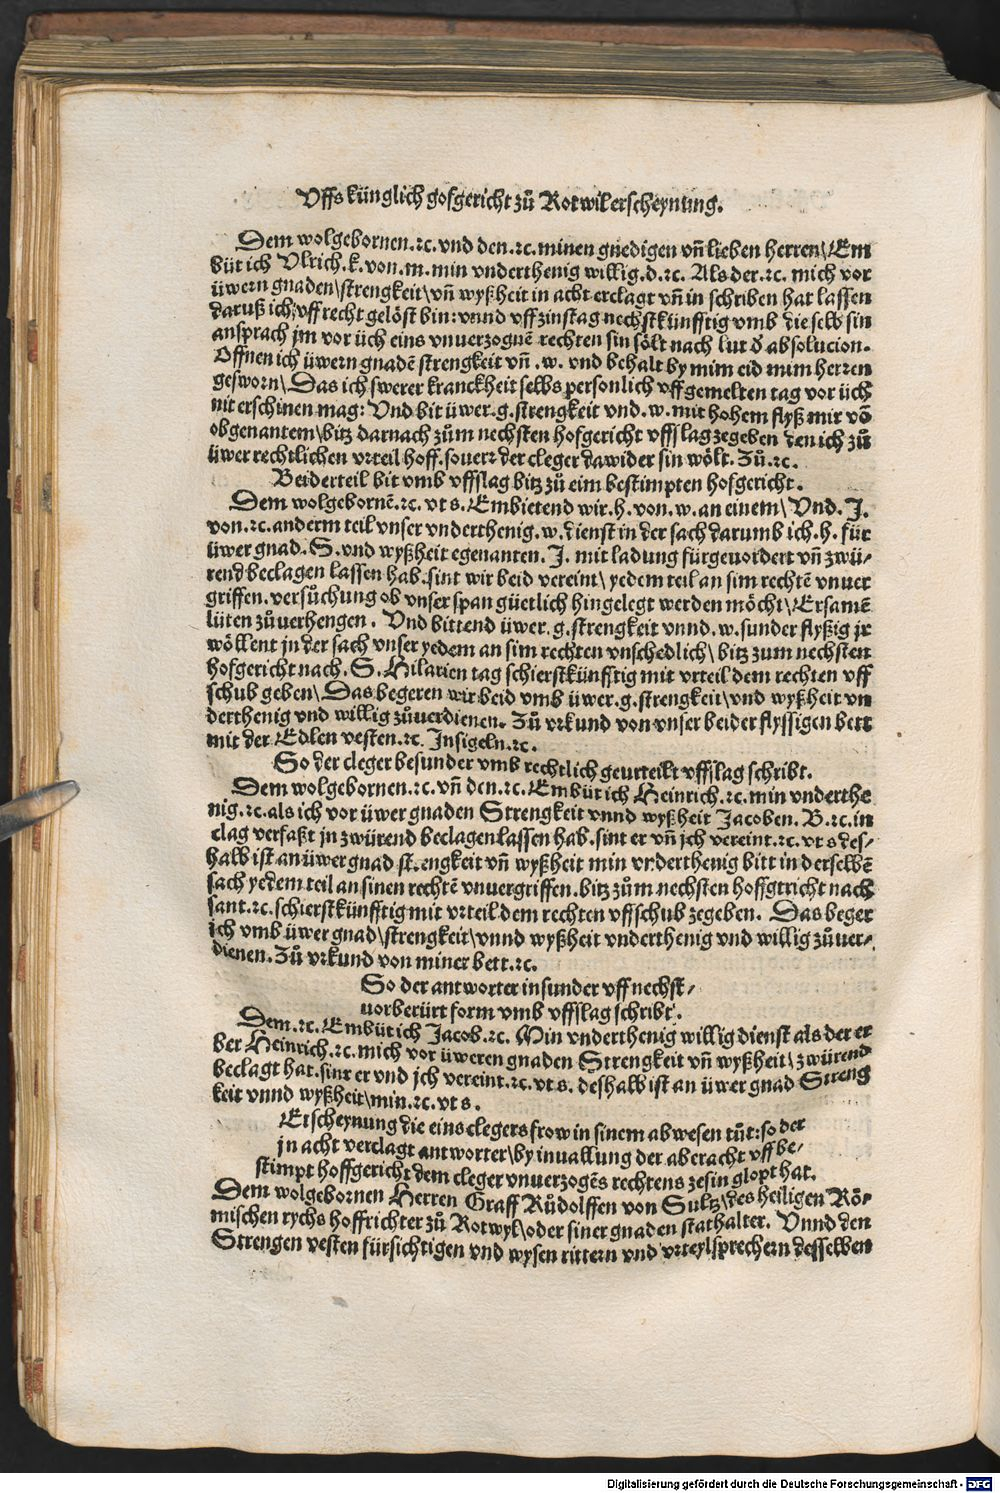 Uffs künglich gofgericht zů Rotwil erscheynung.
Dem wolgebornen.ꝛc. vnd den.ꝛc. minen gnedigen vñ lieben herren\ Em
büt ich Ulrich.k.von.m.min vnderthenig willig.d.ꝛc. Als der.ꝛc. mich vor
üwern gnaden\ strengkeit\ vñ wyßheit in acht erclagt vñ in schriben hat lassen
daruß ich vff recht gelöst bin: vnnd vff zinstag nechstkünfftig vmb die selb sin
ansprach jm vor üch eins vnuerzognē rechten sin sölt nach lut d̕ absolucion.
Offnen ich üwern gnadē strengkeit vñ .w. vnd behalt by mim eid mim herren
gesworn\ Das ich swerer kranckheit selbs personlich vff gemelten tag vor üch
nit erschinen mag: Vnd bit üwer.g.strengkeit vnd.w.mit hohem flyß mir võ
obgenantem\ bitz darnach zům nechsten hofgericht vffslag zegeben den ich zů
üwer rechtlichen vrteil hoff.souerr der cleger dawider sin wölt. Zů.ꝛc.
Beiderteil bit vmb vffslag bitz zů eim bestimpten hofgericht.
Dem wolgebornē.ꝛc. vt s. Embietend wir.h.von.w.an einem\ Vnd.J.
von.ꝛc.anderm teil vnser vnderthenig.w.dienst in der sach darumb ich.h. für
üwer gnad.S.vnd wyßheit egenanten.J. mit ladung fürgeuordert vñ zwü⸗
rend beclagen lassen hab.sint wir beid vereint\ yedem teil an sim rechtē vnuer
griffen.versůchung ob vnser span güetlich hingelegt werden möcht\ Ersamē
lüten zůuerhengen. Vnd bittend üwer.g.strengkeit vnnd.w.sunder flyßig jr
wöllent jn der sach vnser yedem an sim rechten vnschedlich\ bitz zum nechsten
hofgericht nach.S.Hilarien tag schierstkünfftig mit vrteil dem rechten vff
schub geben\ Das begeren wir beid vmb üwer.g.strengkeit\ vnd wyßheit vn
derthenig vnd willig zůuerdienen. Zů vrkund von vnser beider flyssigen bett
mit der Edlen vesten.ꝛc. Jnsigeln.ꝛc.
So der cleger besunder vmb rechtlich geurteilt vffslag schribt.
Dem wolgebornen.ꝛc. vñ den.ꝛc. Embüt ich Heinrich.ꝛc. min vnderthe
nig.ꝛc.als ich vor üwer gnaden Strengkeit vnnd wyßheit Jacoben. B.ꝛc.in
clag verfaßt jn zwürend beclagen lassen hab.sint er vñ jch vereint.ꝛc. vt s des⸗
halb ist an üwer gnad st.engkeit vñ wyßheit min vnderthenig bitt in derselbē
sach yedem teil an sinen rechtē vnuergriffen.bitz zům nechsten hoffgtricht nach
sant.ꝛc.schierstkünfftig mit vrteil dem rechten vffschub zegeben. Das beger
ich vmb üwer gnad\ strengkeit\ vnnd wyßheit vnderthenig vnd willig zůuer⸗
dienen. Zů vrkund von miner bett.ꝛc.
So der antworter insunder vff nechst⸗
uorberürt form vmb vffslag schribt.
Dem.ꝛc. Embüt ich Jacob.ꝛc. Min vnderthenig willig dienst als der er
ber Heinrich.ꝛc. mich vor üweren gnaden Strengkeit vñ wyßheit\ zwürend
beclagt hat.sint er vnd jch vereint.ꝛc. vt s. deshalb ist an üwer gnad Streng
keit vnnd wyßheit\ min.ꝛc. vt s.
Erscheynung die eins clegers frow in sinem abwesen tůt: so der
jn acht verclagt antworter\ by inuallung der aberacht vff be⸗
stimpt hoffgericht dem cleger vnuerzogēs rechtens zesin glopt hat.
Dem wolgebornen Herren Graff Růdolffen von Sultz\ des heiligen Rö⸗
mischen rychs hoffrichter zů Rotwyl\ oder siner gnaden stathalter. Vnnd den
Strengen vesten fürsichtigen vnd wysen rittern vnd vrteylsprechern desselben
Digitalisierung gefördert durch die Deutsche Forschungsgemeinschaft - DFG